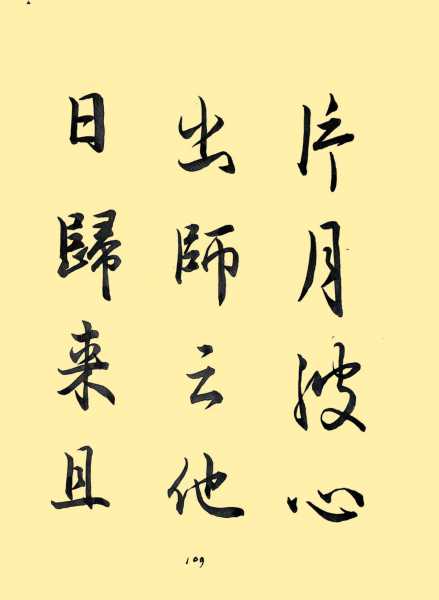 片月波心
出師云他
日歸来且
109